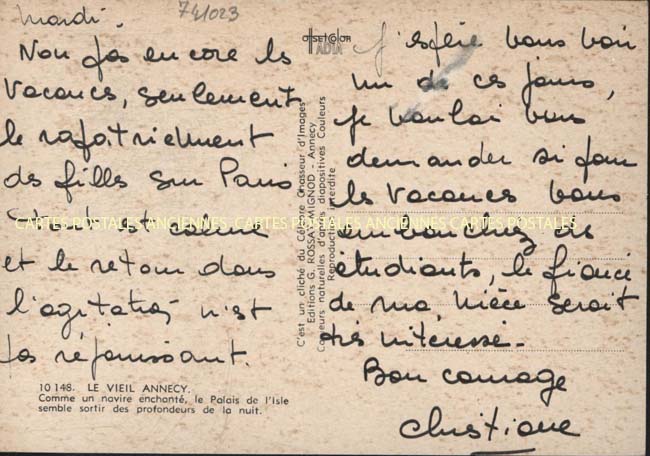 mardi.
74/023
Non pas encore les
Vacances, seulement
le rapatriement
des filles sur Paris
et le retour dans
l'agitation n'est
pas réjouissant.
10 148. LE VIEIL ANNECY.
Comme un navire enchanté, le Palais de l'Isle
semble sortir des profondeurs de la nuit.
CARTES POSTALES ANCIENNES CARTES POSTALES ANCIENNES CARTES POSTALES
OFFSETCOLOR
IADIA
C'est un cliché du Célèbre Chasseur d'Images
Editions G. ROSSAT-MIGNOD - Annecy
Couleurs naturelles d'après diapositives Couleurs
Reproduction interdite
J'espère vous voir
un de ces jours,
je voulai vous
demander si pour
les vacances vous
embauchez des
étudiants, le fiancé
de ma nièce serait
très intéressé.
Bon courage
Christiane